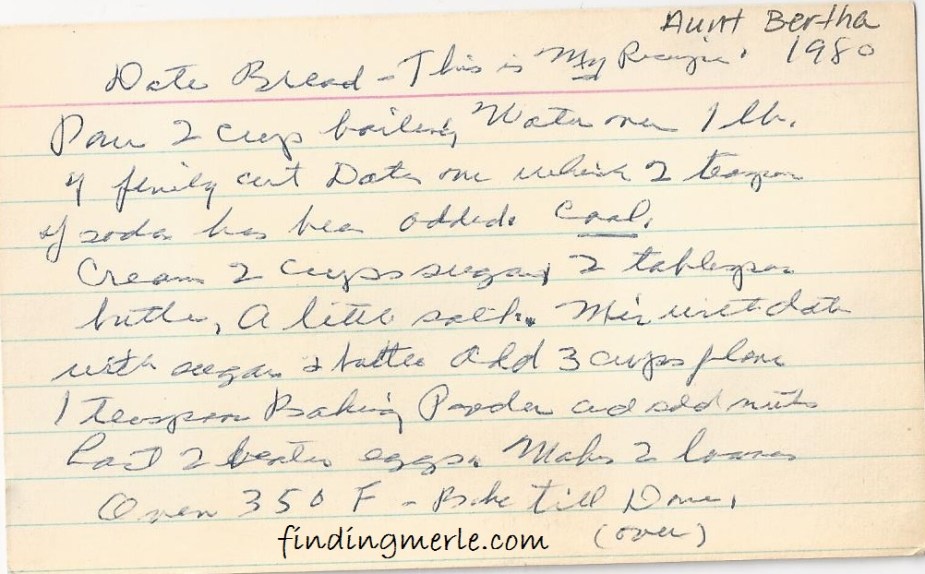 Aunt Bertha
1980
Date Bread - This is My Recipe.
Pour 2 cups boiling Water over 1 lb.
of finely cut Dates on which 2 teaspoon
of soda has been added. Cool.
Cream 2 cups sugar, 2 tablespoon
butter, A little salt. Mix with date
with sugar & butter Add 3 cups flour
1 teaspoon Baking Powder and add nuts
Last 2 beaten eggs. Makes 2 loaves
Oven 350 F - Bake till Done,
(over)
findingmerle.com